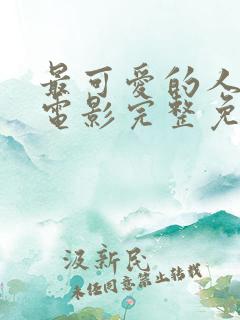 最可愛的人
電影完整免
汲新民
未经同意禁止转载